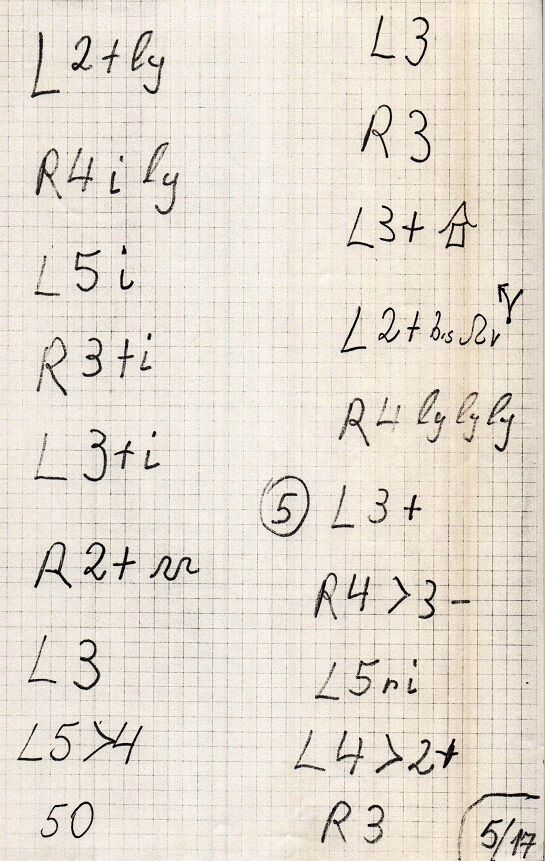 L 2+ ly
R4 i ly
L5 i
R 3+i
L 3+i
R 2+
L 3
L5>4
50
L 3
R 3
L3+
L2+
R4 ly ly ly
5 L 3+
R4 >3-
L5 ni
L4 >2+
R 3
5/17